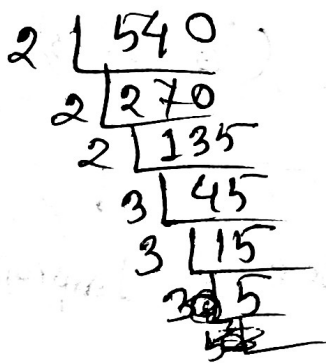 2 540
2 270
2 135
3 45
3 15
3 5